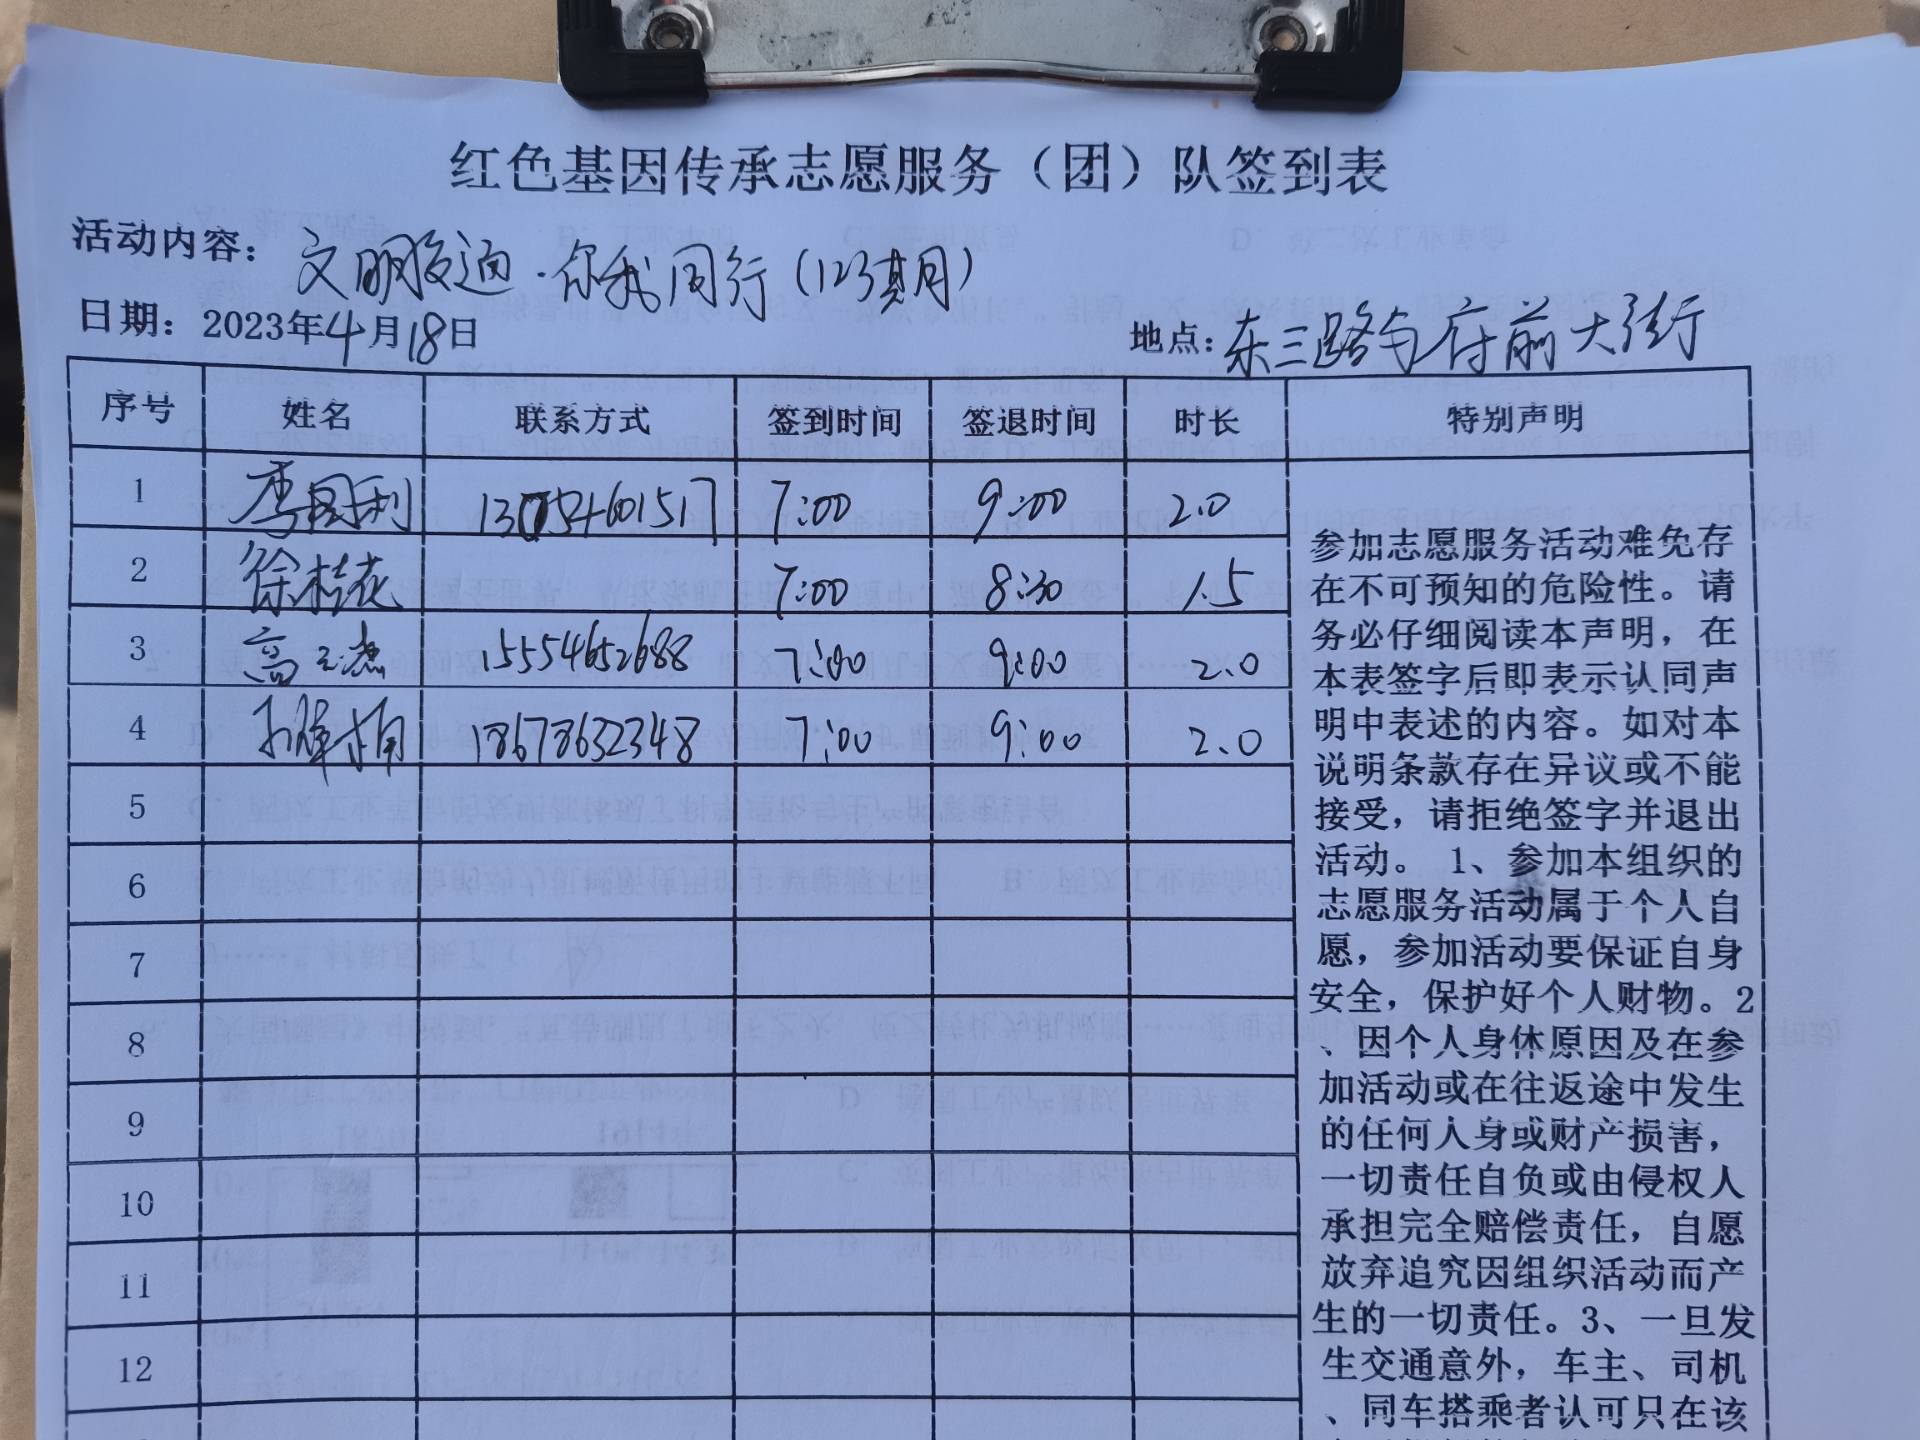 红色基因传承志愿服务（团）队签到表
活动内容：文明交通·你我同行（123期）
日期：2023年4月18日 地点：东三路与府前大街
序号 姓名 联系方式 签到时间 签退时间 时长 特别声明
1 李国利 13054601517 7:00 9:00 2.0
2 徐桂花 7:00 8:30 1.5
3 高 15554652688 7:00 9:00 2.0
4 18678632348 7:00 9:00 2.0
5
6
7
8
9
10
11
12
参加志愿服务活动难免存
在不可预知的危险性。请
务必仔细阅读本声明，在
本表签字后即表示认同声
明中表述的内容。如对本
说明条款存在异议或不能
接受，请拒绝签字并退出
活动。1、参加本组织的
志愿服务活动属于个人自
愿，参加活动要保证自身
安全，保护好个人财物。2
、因个人身体原因及在参
加活动或在往返途中发生
的任何人身或财产损害，
一切责任自负或由侵权人
承担完全赔偿责任，自愿
放弃追究因组织活动而产
生的一切责任。3、一旦发
生交通意外，车主、司机
、同车搭乘者认可只在该